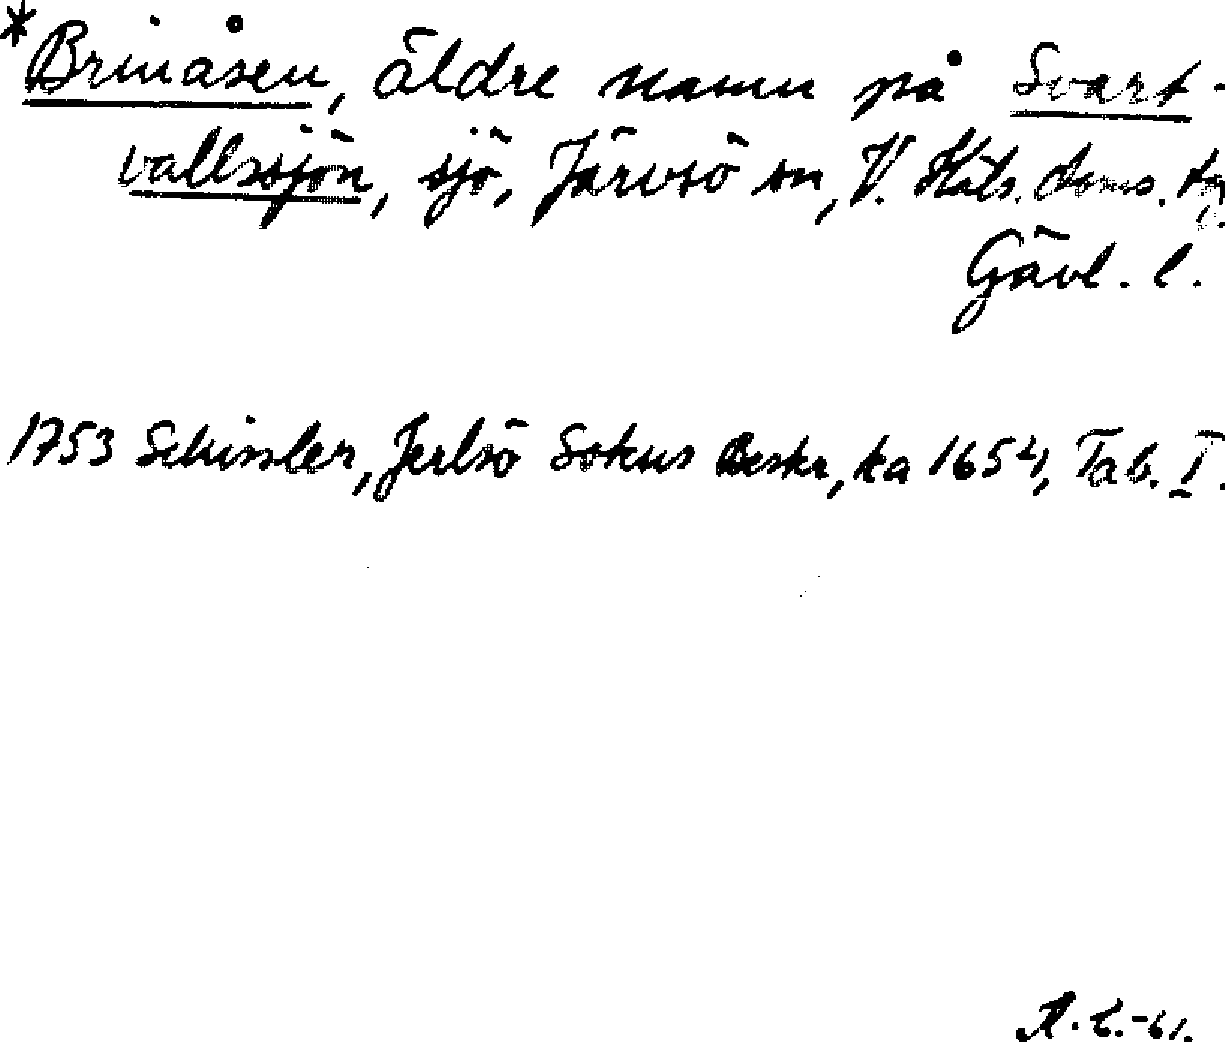 *Brinåsen, äldre namn på Svart-
vallssjön, sjö, Järvsö sn, V. Häls. doms. tg
Gävl. l.
1753 Schissler, Jerlsö Sokns Beskr, ka 1654, Tab. I.
A.L.-61.